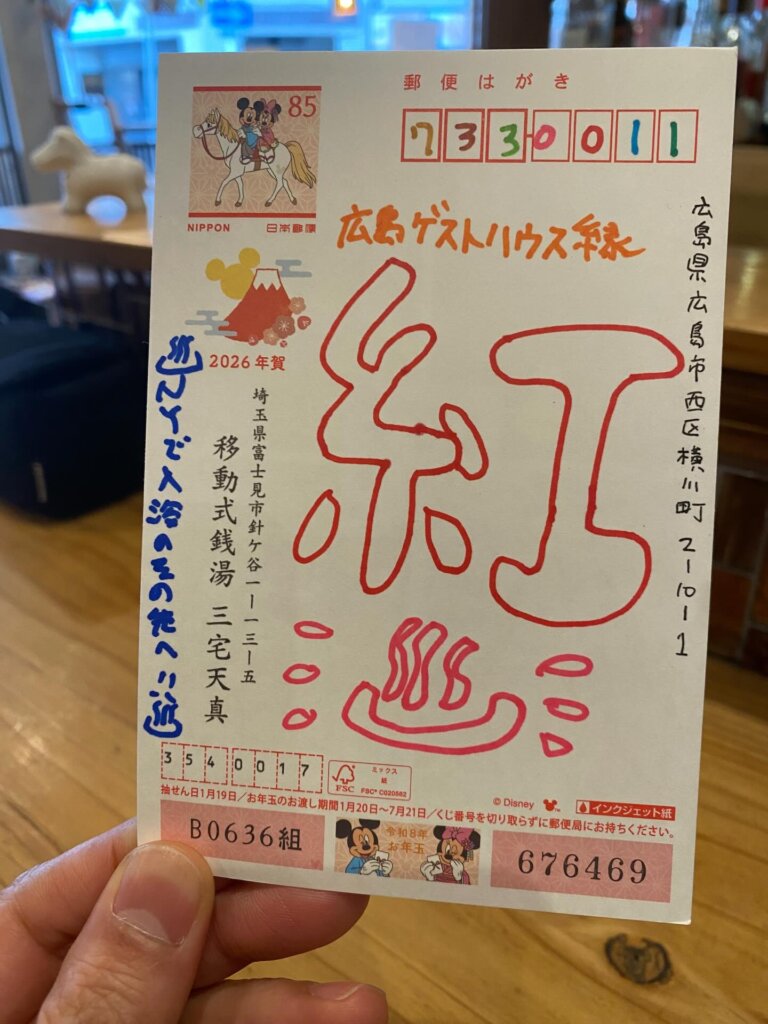 郵便はがき
85
NIPPON 日本郵便
7330011
広島県広島市西区横川町2-10-1
広島ゲストハウス縁
紅
2026年賀
埼玉県富士見市針ケ谷一ー一三ー五
移動式銭湯 三宅天真
♨NYで入浴のその先へ!!♨
3540017
FSC
ミックス
紙
FSC® C020562
© Disney
インクジェット紙
抽せん日1月19日/お年玉のお渡し期間1月20日～7月21日/くじ番号を切り取らずに郵便局にお持ちください。
B0636組
令和8年
お年玉
676469